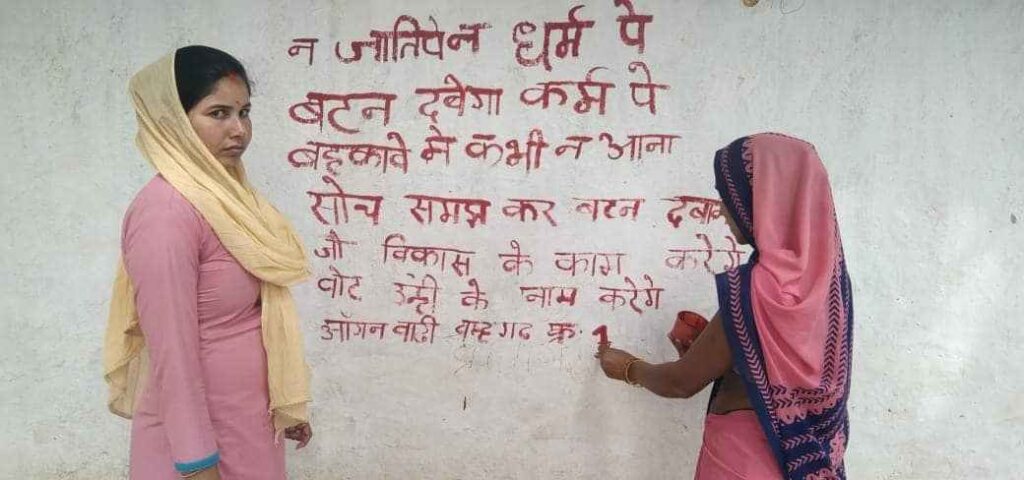 न जातिपेन धर्म पे
बटन दवेगा कर्म पे
बहकावे मे कभी न आना
सोच समझ कर बटन दबाना
जो विकास के काम करेगे
वोट उन्ही के नाम करेगे
ऑगनवाडी वम्हगढ क्र. 1